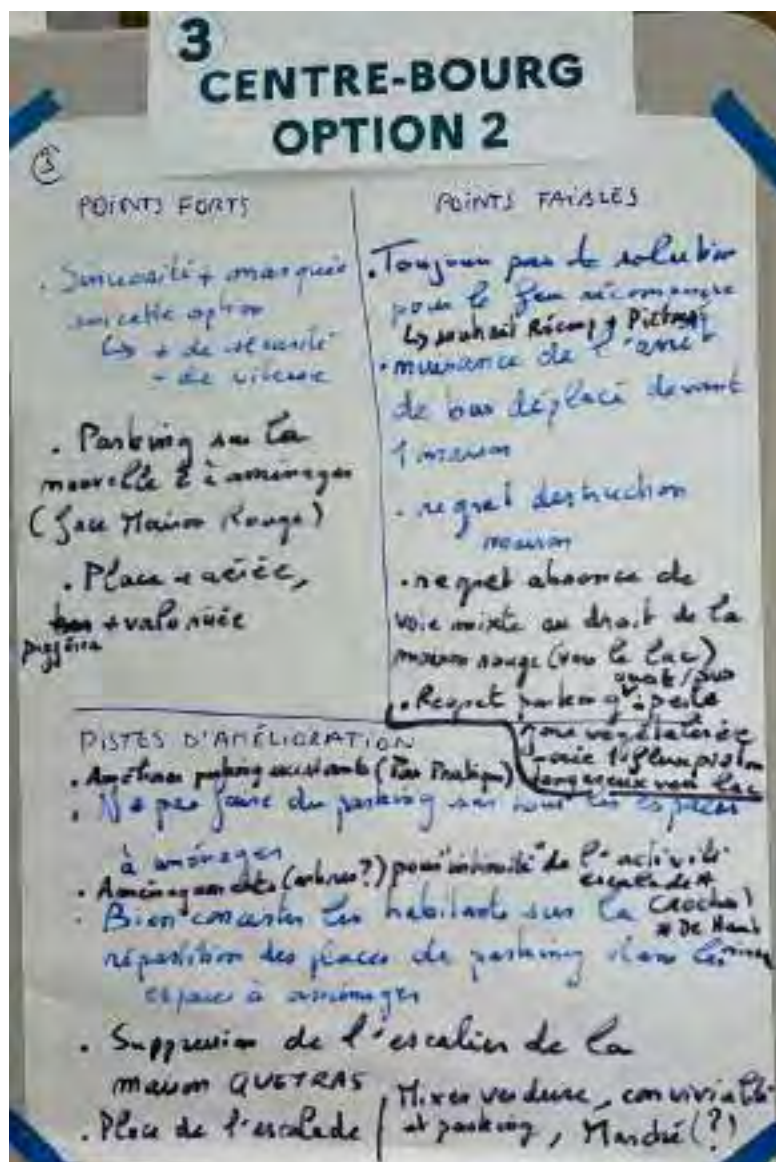 3
CENTRE-BOURG
OPTION 2
3
POINTS FORTS
. Sinuosité + marquée
sur cette option
↳ + de sécurité
- de vitesse
. Parking sur la
nouvelle à aménager
(face Maison Rouge)
. Place + aérée,
+ valorisée
pizzéria
POINTS FAIBLES
. Toujours pas de solution
pour le feu récompense
↳ souhait Récomp + Piéton
. nuisance de l'arrêt
de bus déplacé devant
1 maison
. regret destruction
maison
. regret absence de
voie mixte au droit de la
maison rouge (vers le lac)
. Regret parking perte
zone végétalisée
dangereux vers lac
PISTES D'AMÉLIORATION
. Améliorer parking existants (Pratique)
. Ne pas faire du parking sur tous les espaces
à aménager
. Aménagements (arbres?) pour "intimité" de l'activité
escalade
. Bien concerter les habitants sur la
répartition des places de parking dans les
espaces à aménager
. Suppression de l'escalier de la
maison QUETRAS
. Place de l'escalade
Mixer verdure, convivialité
et parking, Marché (?)